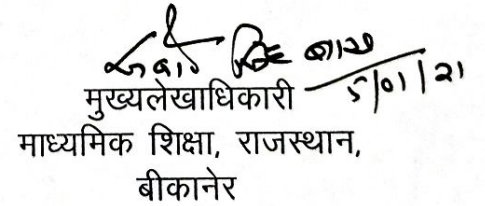 5/01/21
मुख्यलेखाधिकारी
माध्यमिक शिक्षा, राजस्थान,
बीकानेर